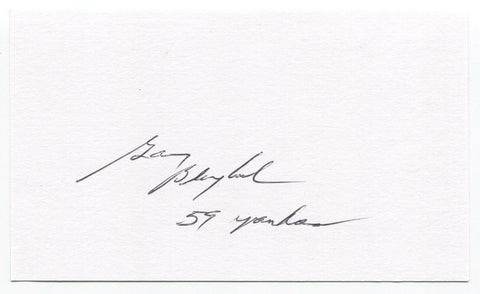 Gary
Blaylock
59 Yankees